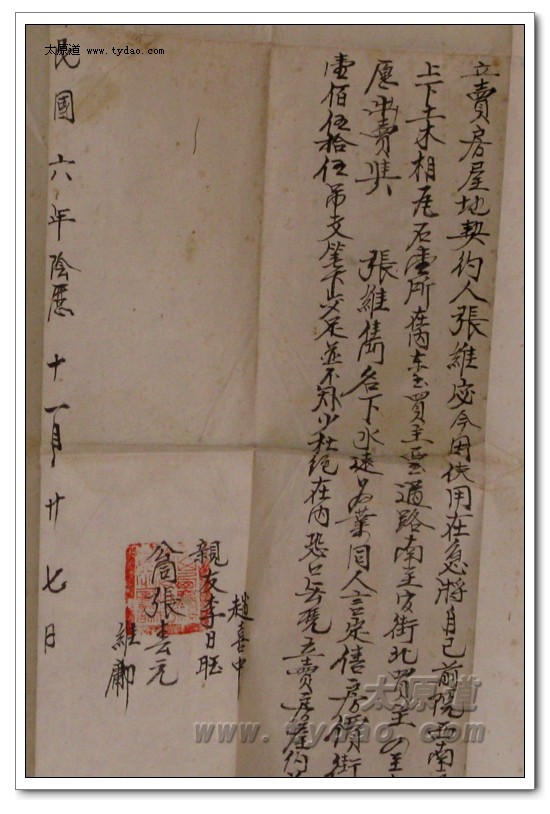 立賣房屋地契約人張維
今因使用在急將自己前院西南
上下土木相尾石壹所在內東至買主西至道路南至官街北買主
愿出賣與 張維雋名下永遠為業同人言定售房價街
壹佰伍拾伍吊文筆下交足並不欠少杜絕在內恐口無憑立賣房屋約
趙喜中
親友李日旺
翁張春元
維
民國六年陰曆十一月廿七日
太原道 www.tydao.com
太原道
www.tydao.com